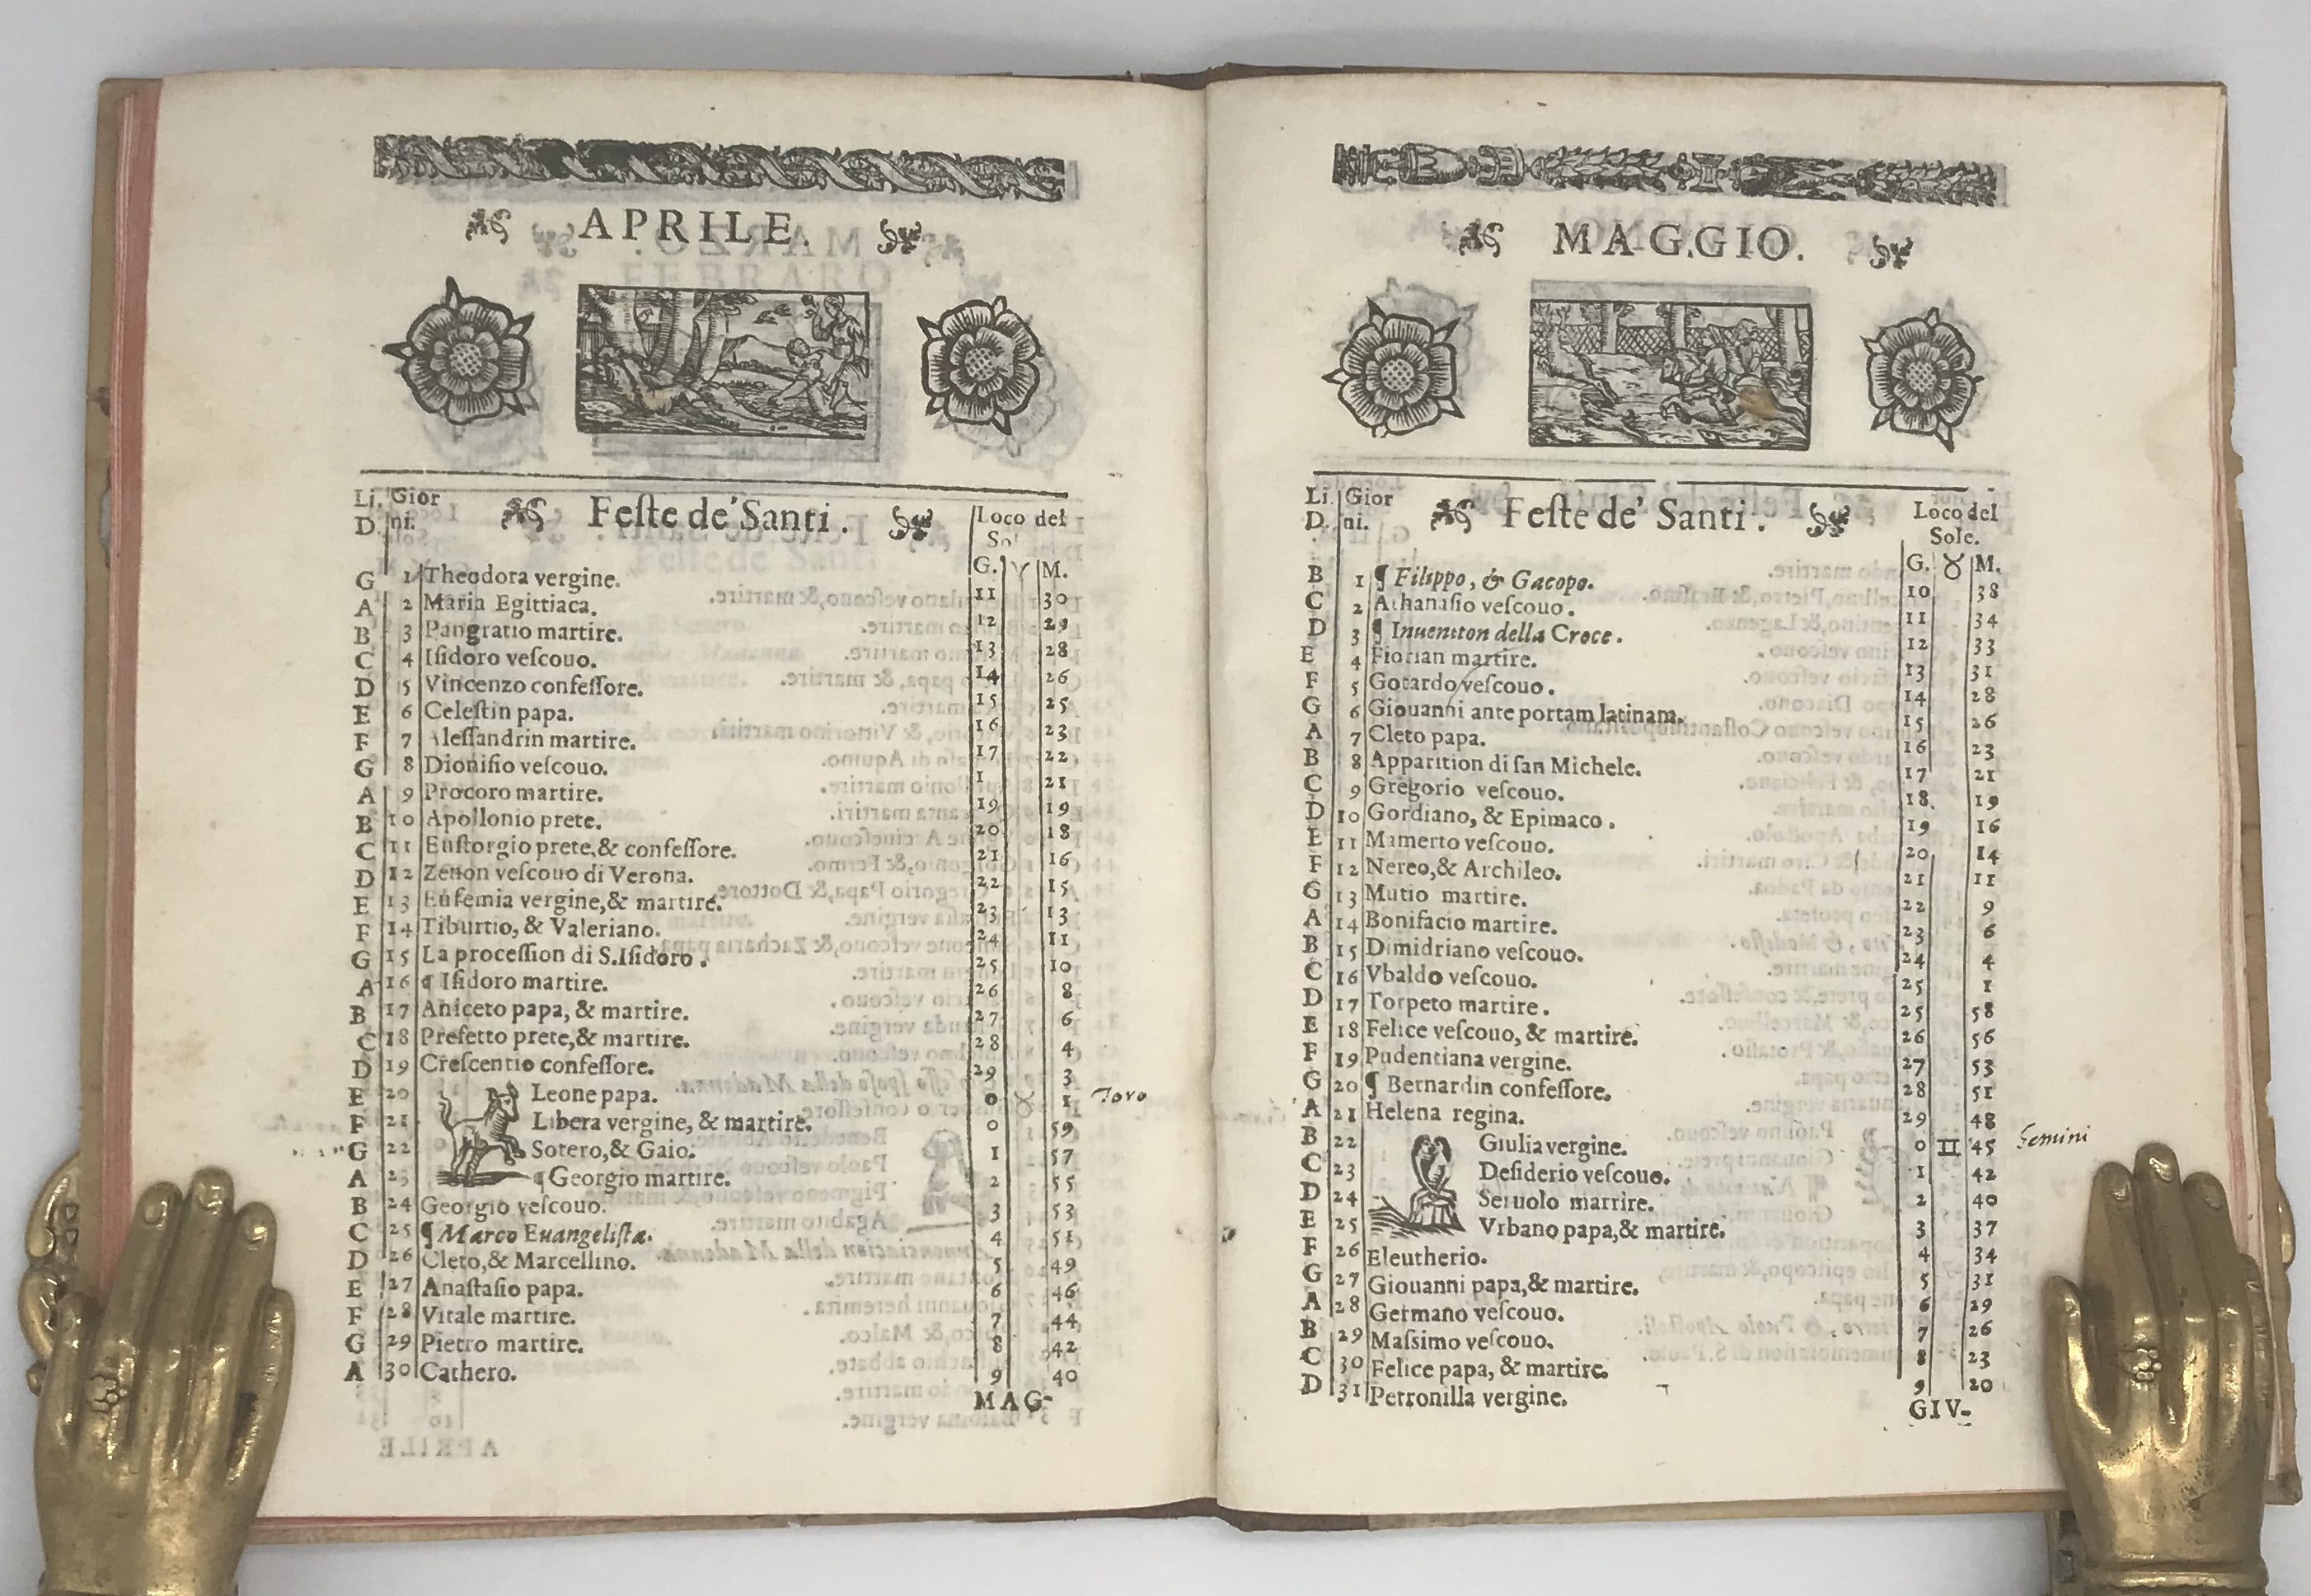 APRILE.
Li. Gior Feſte de' Santi. Loco del
D. ni. Sol
G. ♈ M.
G 1 Theodora vergine. 11 30
A 2 Maria Egittiaca. 12 29
B 3 Pangratio martire. 13 28
C 4 Iſidoro veſcouo. 14 26
D 5 Vincenzo confeſſore. 15 25
E 6 Celeſtin papa. 16 23
F 7 Aleſſandrin martire. 17 22
G 8 Dioniſio veſcouo. 1 21
A 9 Procoro martire. 19 19
B 10 Apollonio prete. 20 18
C 11 Euſtorgio prete,& confeſſore. 21 16
D 12 Zenon veſcouo di Verona. 22 15
E 13 Eufemia vergine,& martire. 23 13
F 14 Tiburtio, & Valeriano. 24 11
G 15 La proceſſion di S.Iſidoro. 25 10
A 16 ¶ Iſidoro martire. 26 8
B 17 Aniceto papa, & martire. 27 6
C 18 Prefetto prete,& martire. 28 4
D 19 Creſcentio confeſſore. 29 3
E 20 Leone papa. 0 ♉ 1 Toro
F 21 Libera vergine, & martire. 0 59
G 22 Sotero,& Gaio. 1 57
A 23 ¶Georgio martire. 2 55
B 24 Georgio veſcouo. 3 53
C 25 ¶ Marco Euangeliſta. 4 51
D 26 Cleto,& Marcellino. 5 49
E 27 Anaſtaſio papa. 6 46
F 28 Vitale martire. 7 44
G 29 Pietro martire. 8 42
A 30 Cathero. 9 40
MAG-
MAGGIO.
Li. Gior Feſte de' Santi. Loco del
D. ni. Sole.
G. ♉ M.
B 1 ¶ Filippo, & Gacopo. 10 38
C 2 Athanaſio veſcouo. 11 34
D 3 ¶ Inuention della Croce. 12 33
E 4 Florian martire. 13 31
F 5 Gotardo veſcouo. 14 28
G 6 Giouanni ante portam latinam. 15 26
A 7 Cleto papa. 16 23
B 8 Apparition di ſan Michele. 17 21
C 9 Gregorio veſcouo. 18. 19
D 10 Gordiano, & Epimaco. 19 16
E 11 Mamerto veſcouo. 20 14
F 12 Nereo,& Archileo. 21 11
G 13 Mutio martire. 22 9
A 14 Bonifacio martire. 23 6
B 15 Dimidriano veſcouo. 24 4
C 16 Vbaldo veſcouo. 25 1
D 17 Torpeto martire. 25 58
E 18 Felice veſcouo, & martire. 26 56
F 19 Pudentiana vergine. 27 53
G 20 ¶ Bernardin confeſſore. 28 51
A 21 Helena regina. 29 48
B 22 Giulia vergine. 0 ♊ 45 Gemini
C 23 Deſiderio veſcouo. 1 42
D 24 Seruolo marrire. 2 40
E 25 Vrbano papa,& martire. 3 37
F 26 Eleutherio. 4 34
G 27 Giouanni papa,& martire. 5 31
A 28 Germano veſcouo. 6 29
B 29 Maſsimo veſcouo. 7 26
C 30 Felice papa, & martire. 8 23
D 31 Petronilla vergine. 9 20
GIV-